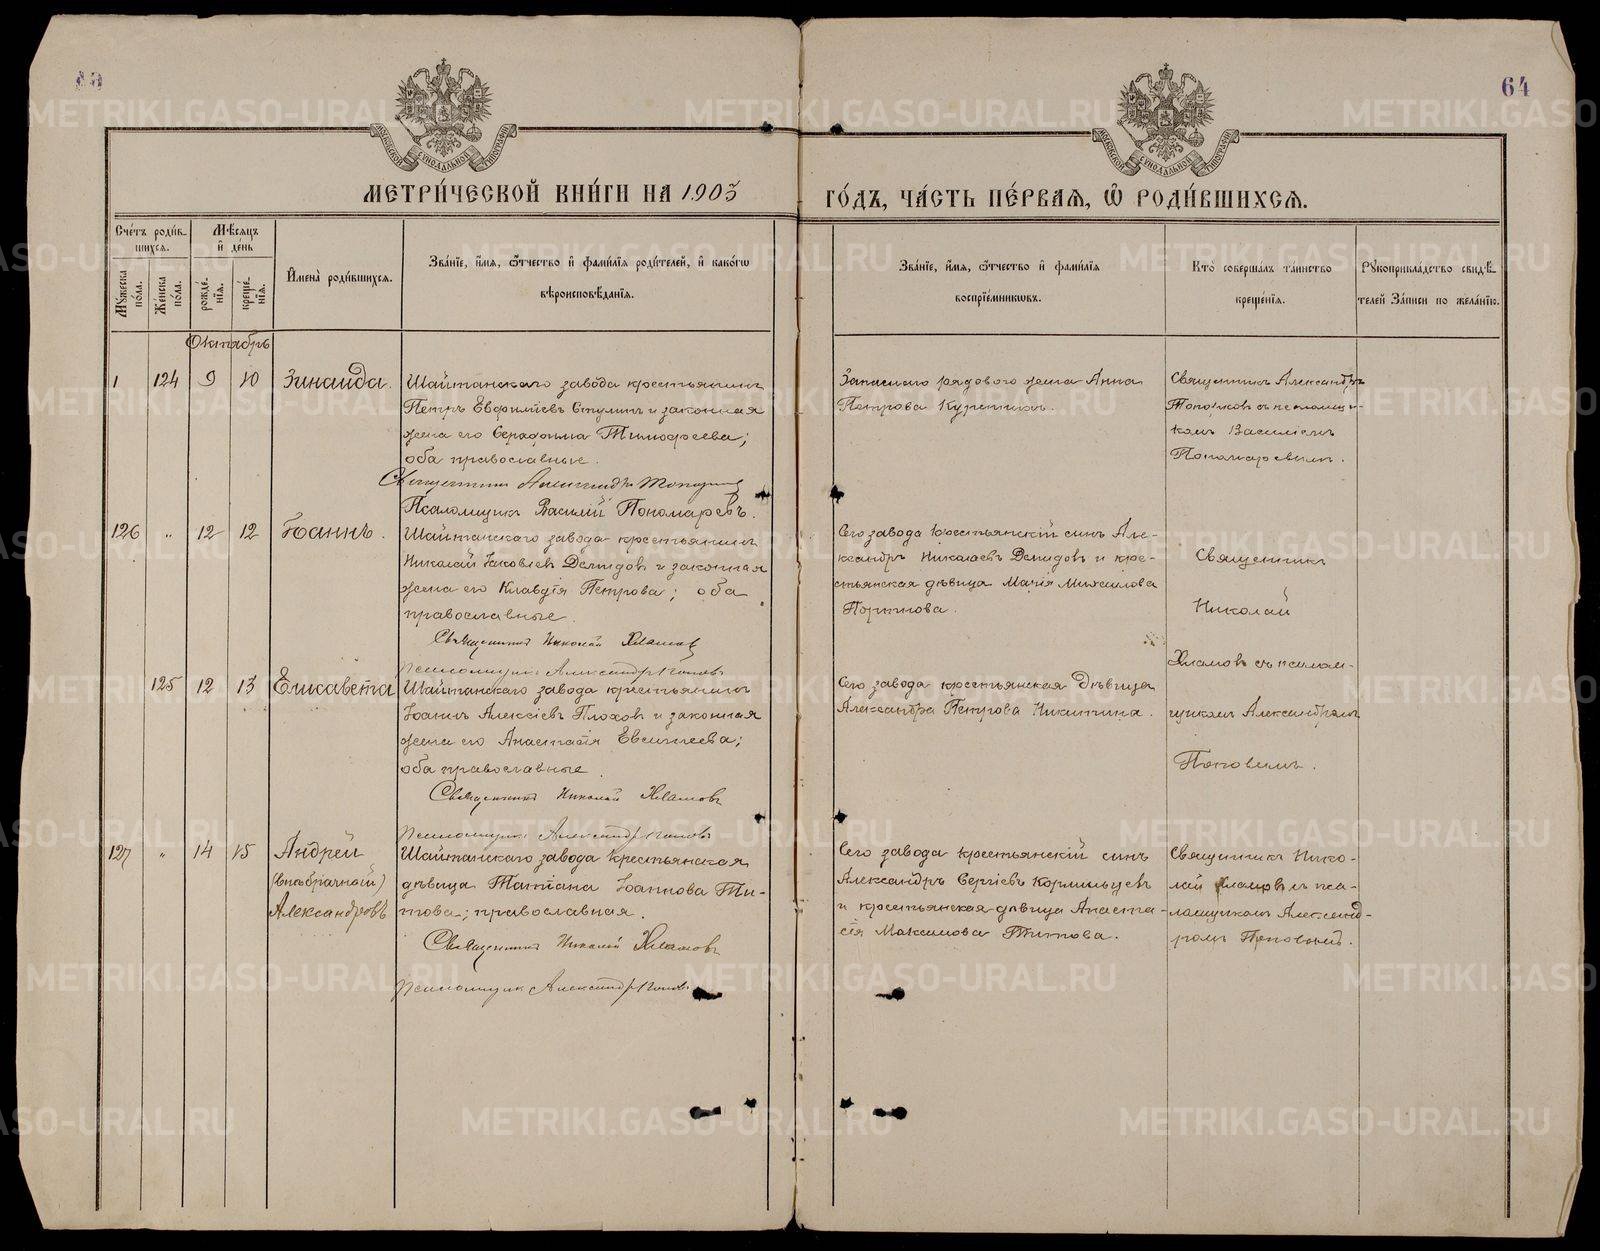 64
МОСКОВСКОЙ СѴНОДАЛЬНОЙ ТИПОГРАФІИ
МОСКОВСКОЙ СѴНОДАЛЬНОЙ ТИПОГРАФІИ
МЕТРИ́ЧЕСКОЙ КНИ́ГИ НА 1903 ГО́ДЪ, ЧА́СТЬ ПЕ́РВАЯ, Ѡ РОДИ́ВШИХСЯ.
Сче́тъ роди́в-
шихся.
Мѣ́сяцъ
и де́нь
Му́жеска по́ла.
Же́нска по́ла.
рожде́-
нія.
креще́-
нія.
Имена̀ роди́вшихся.
Зва́ніе, и́мя, ѻ́тчество и фами́лія роди́телей, и како́гѡ
вѣроисповѣ́данія.
Зва́ніе, и́мя, ѻ́тчество и фами́лія
воспріе́мникѡвъ.
Кто̀ соверша́лъ та́инство
креще́нія.
Рукоприкла́дство свидѣ́-
телей за́писи по жела́нію.
Октябрь
124 9 10 Зинаида.
Шайтанскаго завода крестьянинъ
Петръ Евфиміевъ и законная
жена его Серафима Тимофеева;
оба православные.
Священникъ Александръ
Псаломщикъ Василій Пономаревъ.
Запаснаго рядового жена Анна
Петрова
Священникъ Александръ
съ псаломщи-
комъ Василіемъ
Пономаревымъ.
126 „ 12 12 Іоаннъ.
Шайтанскаго завода крестьянинъ
Николай Іаковлевъ Демидовъ и законная
жена его Клавдія Петрова; оба
православные.
Священникъ Николай Хламовъ
Псаломщикъ Александръ Поповъ
Сего завода крестьянскій сынъ Але-
ксандръ Николаевъ Демидовъ и кре-
стьянская дѣвица Марія Михаилова
Священникъ
Николай
Хламовъ съ псалом-
щикомъ Александромъ
Поповымъ.
125 12 13 Елисавета
Шайтанскаго завода крестьянинъ
Іоаннъ Алексіевъ Плоховъ и законная
жена его Анастасія Евсигнеева;
оба православные.
Священникъ Николай Хламовъ
Псаломщикъ Александръ Поповъ
Сего завода крестьянская дѣвица
Александра Петрова Никитина.
127 „ 14 15 Андрей
(внѣбрачный)
Александровъ
Шайтанскаго завода крестьянская
дѣвица Татіана Іоаннова Ти-
това; православная.
Священникъ Николай Хламовъ
Псаломщикъ Александръ Поповъ
Сего завода крестьянскій сынъ
Александръ Сергіевъ Кормильцевъ
и крестьянская дѣвица Анаста-
сія Максимова Титова.
Священникъ Нико-
лай Хламовъ съ пса-
ломщикомъ Александ-
ромъ Поповымъ.
METRIKI.GASO-URAL.RU